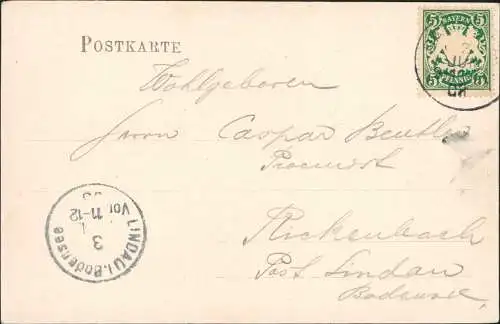 POSTKARTE
BAYERN
5 5
5 PFENNIG 5
Wohlgeboren
Herrn Caspar Beutler
Procurist
Rickenbach
Post Lindau
Bodensee.
LINDAU i. Bodensee
3
VOR 11-12